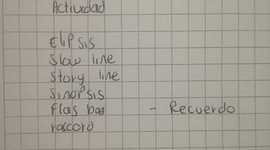 Actividad
Elipsis
Slow line
Story line
Sinopsis
Flas bas - Recuerdo
rascord